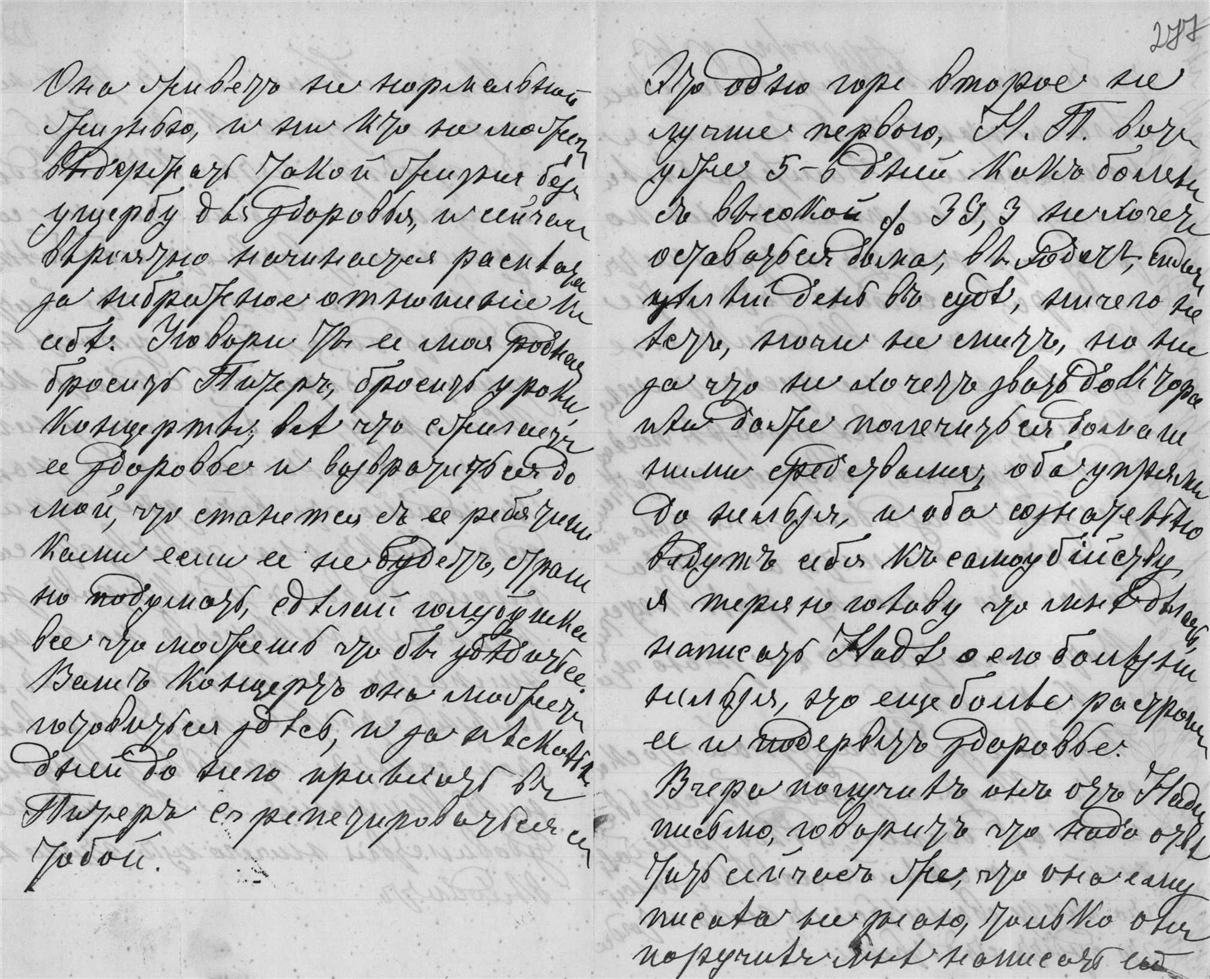 Она живетъ не нормальной
жизнью, и ни кто не можетъ
выдержать такой жизни безъ
ущербу для здоровья, и сейчасъ
вѣроятно начинается расплата
за небрежное отношение къ
себѣ. Уговори ты ее моя родная
бросить Питеръ, бросить уроки,
Концерты, всѣ что
ее здоровье и возвратиться до
мой, что станется съ ее ребятиш
ками если ее не будетъ, страш
но подумать, сдѣлай голубушка
все что можешь что бы убѣдить ее.
Вашъ Концертъ она можетъ
готовиться здѣсь, и за нѣсколько
дней до него приѣхать въ
Питеръ срепетироваться съ
тобой.
277
Это одно горе второе не
лучше первого, Н. П. вотъ
уже 5-6 дней какъ боленъ
съ высокой t° 39,3 не хочетъ
оставаться дома, выходитъ,
цѣлый день въ судѣ, ничего не
ѣстъ, ночи не спитъ, но ни
за что не хочетъ звать доктора
или даже полечиться домаш
ними средствами, оба упрямы
до нельзя, и оба сознательно
ведутъ себя къ самоубійству
я теряю голову что мнѣ дѣлать,
написать Надѣ о его болѣзни
нельзя, это еще болѣе растроитъ
ее и подерветъ здоровье.
Вчера получилъ онъ отъ Нади
письмо, говоритъ что надо отвѣ
тить сейчасъ же, что она ему
писала не знаю, только онъ
поручилъ мнѣ написать